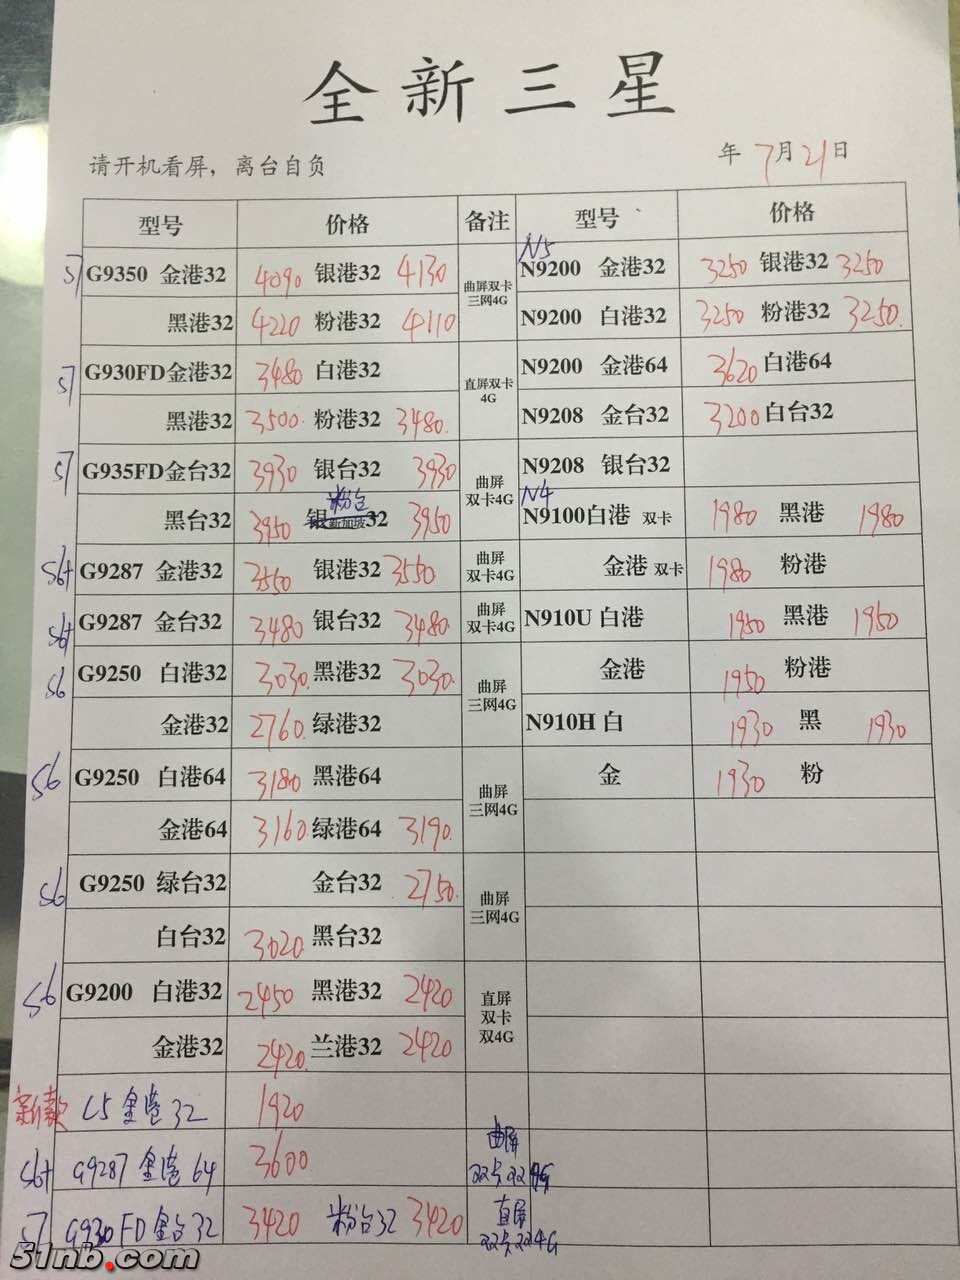 全新三星
请开机看屏，离台自负
年 7月21日
型号 价格 备注 型号 价格
S7 G9350 金港32 4090 银港32 4130 曲屏双卡三网4G N5 N9200 金港32 3250 银港32 3250
黑港32 4220 粉港32 4110 N9200 白港32 3250 粉港32 3250
S7 G930FD金港32 3480 白港32 直屏双卡4G N9200 金港64 3620 白港64
黑港32 3500 粉港32 3480 N9208 金台32 3200 白台32
S7 G935FD金台32 3930 银台32 3930 曲屏双卡4G N9208 银台32
黑台32 3950 粉台 32 3950 N4 N9100白港 双卡 1980 黑港 1980
S6+ G9287 金港32 3550 银港32 3550 曲屏双卡4G 金港 双卡 1980 粉港
S6+ G9287 金台32 3480 银台32 3480 曲屏双卡4G N910U 白港 1950 黑港 1950
S6 G9250 白港32 3030 黑港32 3030 曲屏三网4G 金港 1950 粉港
金港32 2760 绿港32 N910H 白 1930 黑 1930
S6 G9250 白港64 3180 黑港64 曲屏三网4G 金 1930 粉
金港64 3160 绿港64 3190
S6 G9250 绿台32 金台32 2750 曲屏三网4G
白台32 3020 黑台32
S6 G9200 白港32 2450 黑港32 2420 直屏双卡双4G
金港32 2420 兰港32 2420
新款 C5 金港32 1920
S6+ G9287 金港 64 3600 曲屏双卡双4G
S7 G930FD 金台32 3420 粉台32 3420 直屏双卡双4G
51nb.com